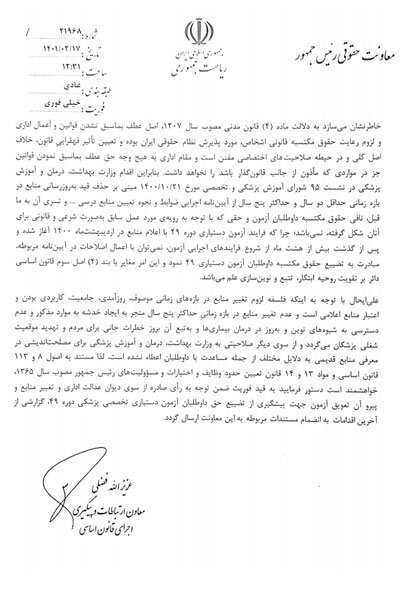 جمهوری اسلامی ایران
ریاست جمهوری
معاونت حقوقی رئیس جمهور
شماره: ۲۱۹۶۸ /
تاریخ: ۱۴۰۱/۰۲/۱۷
ساعت: ۱۲:۳۱
طبقه بندی: عادی
فوریت: خیلی فوری
خاطرنشان می‌سازد به دلالت ماده (۴) قانون مدنی مصوب سال ۱۳۰۷، اصل عطف بماسبق نشدن قوانین و اعمال اداری
و لزوم رعایت حقوق مکتسبه قانونی اشخاص، مورد پذیرش نظام حقوقی ایران بوده و تعیین تأثیر قهقرایی قانون، خلاف
اصل کلی و در حیطه صلاحیت‌های اختصاصی مقنن است و مقام اداری به هیچ وجه حق عطف بماسبق نمودن قوانین
جز در مواردی که مأذون از جانب قانون‌گذار باشد را نخواهد داشت. بنابراین اقدام وزارت بهداشت، درمان و آموزش
پزشکی در نشست ۹۵ شورای آموزش پزشکی و تخصصی مورخ ۱۴۰۰/۱۰/۲۱ مبنی بر حذف قید به‌روزرسانی منابع در
بازه زمانی حداقل دو سال و حداکثر پنج سال از آیین‌نامه اجرایی ضوابط و نحوه تعیین منابع درسی ... و تسری آن به ما
قبل، نافی حقوق مکتسبه داوطلبان آزمون و حقی که با توجه به رویه‌ی مورد عمل سابق به‌صورت شرعی و قانونی برای
آنان شکل گرفته، نمی‌باشد؛ چرا که فرایند آزمون دستیاری دوره ۴۹ با اعلام منابع در اردیبهشت‌ماه ۱۴۰۰ آغاز شده و
پس از گذشت بیش از هشت ماه از شروع فرایندهای اجرایی آزمون، نمی‌توان با اعمال اصلاحات در آیین‌نامه مربوطه،
مبادرت به تضییع حقوق مکتسبه داوطلبان آزمون دستیاری ۴۹ نمود و این امر مغایر با بند (۴) اصل سوم قانون اساسی
دائر بر تقویت روحیه ابتکار، تتبع و نوین‌سازی علم می‌باشد.
علی‌ایحال با توجه به اینکه فلسفه لزوم تغییر منابع در بازه‌های زمانی موصوف، روزآمدی، جامعیت، کاربردی بودن و
اعتبار منابع اعلامی است و عدم تغییر منابع در بازه زمانی حداکثر پنج سال منجر به ایجاد خدشه به موارد مذکور و عدم
دسترسی به شیوه‌های نوین و به‌روز در درمان بیماری‌ها و به‌تبع آن بروز خطرات جانی برای مردم و تهدید موقعیت
شغلی پزشکان می‌گردد و از سوی دیگر صلاحیتی به وزارت بهداشت، درمان و آموزش پزشکی برای مصلحت‌اندیشی در
معرفی منابع قدیمی به دلایل مختلف از جمله مساعدت با داوطلبان اعطاء نشده است، لذا مستند به اصول ۸ و ۱۱۳
قانون اساسی و مواد ۱۳ و ۱۴ قانون تعیین حدود وظایف و اختیارات و مسؤولیت‌های رئیس جمهور مصوب سال ۱۳۶۵،
خواهشمند است دستور فرمایید به قید فوریت ضمن توجه به رأی صادره از سوی دیوان عدالت اداری و تغییر منابع و
پیرو آن تعویق آزمون جهت پیشگیری از تضییع حق داوطلبان آزمون دستیاری تخصصی پزشکی دوره ۴۹، گزارشی از
آخرین اقدامات به انضمام مستندات مربوطه به این معاونت ارسال گردد.
عزیزالله فضلی
معاون ارتباطات و پیگیری
اجرای قانون اساسی